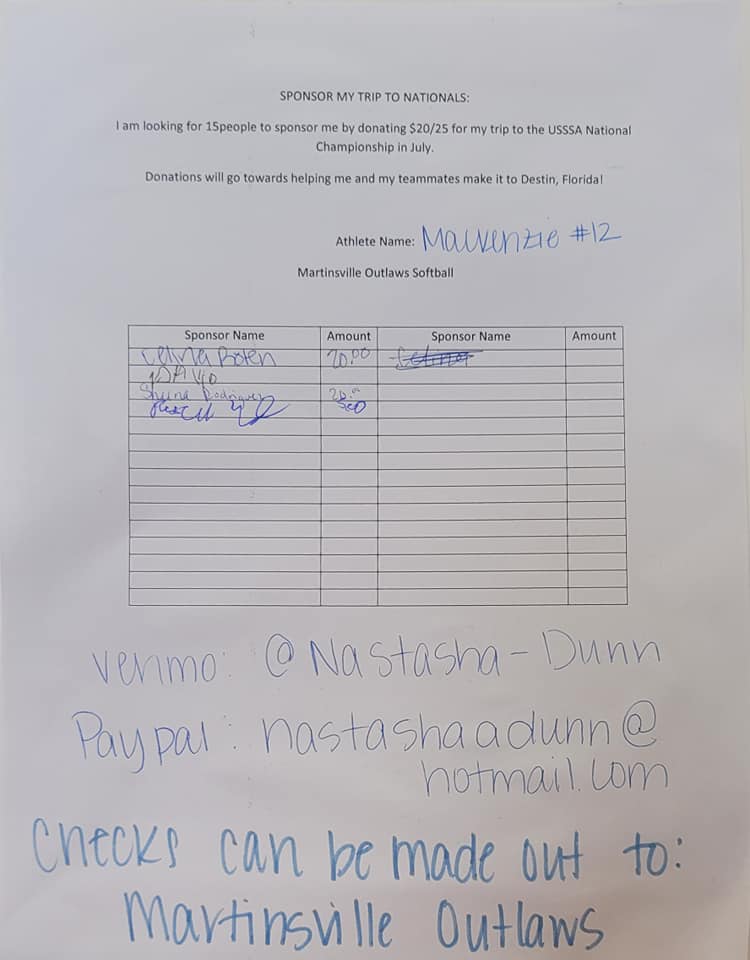 SPONSOR MY TRIP TO NATIONALS:
I am looking for 15people to sponsor me by donating $20/25 for my trip to the USSSA National
Championship in July.
Donations will go towards helping me and my teammates make it to Destin, Florida!
Athlete Name: Mackenzie #12
Martinsville Outlaws Softball
Sponsor Name Amount Sponsor Name Amount
Celina Boten 20.00
Rodriguez 20.00
venmo: @Nastasha-Dunn
Paypal: nastashaadunn@
hotmail.com
Checks can be made out to:
Martinsville Outlaws